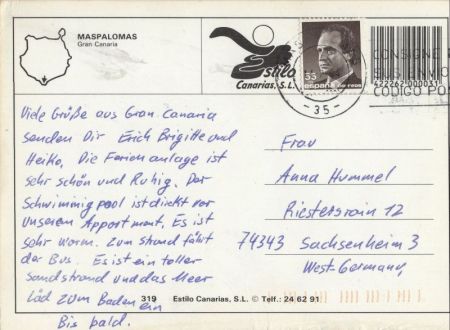 MASPALOMAS
Gran Canaria
Estilo
Canarias, S.L.
35
españa
CORREOS
CONSIGNE
SUS ENVIO
CODIGO POS
- 35 -
Viele Grüße aus Gran Canaria
senden Dir Erich Brigitte und
Heiko. Die Ferienanlage ist
sehr schön und Ruhig. Der
Schwimmig pool ist direkt vor
unserem Appartment. Es ist
sehr warm. Zum Strand fährt
der Bus. Es ist ein toller
Sandstrand und das Meer
läd zum Baden ein
Bis bald.
Frau
Anna Hummel
Riestersrain 12
74343 Sachsenheim 3
West-Germany
319 Estilo Canarias, S.L. © Telf.: 24 62 91